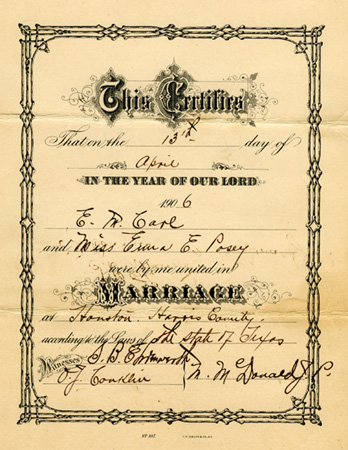 This Certifies
That on the 13th day of
April
IN THE YEAR OF OUR LORD
1906
E. M. Earl
and Miss Emma E. Posey
were by me united in
MARRIAGE
at Houston Harris County
according to the Laws of The State of Texas
Witnesses
S. B.
O. J. Conklin
McDonald J. P.